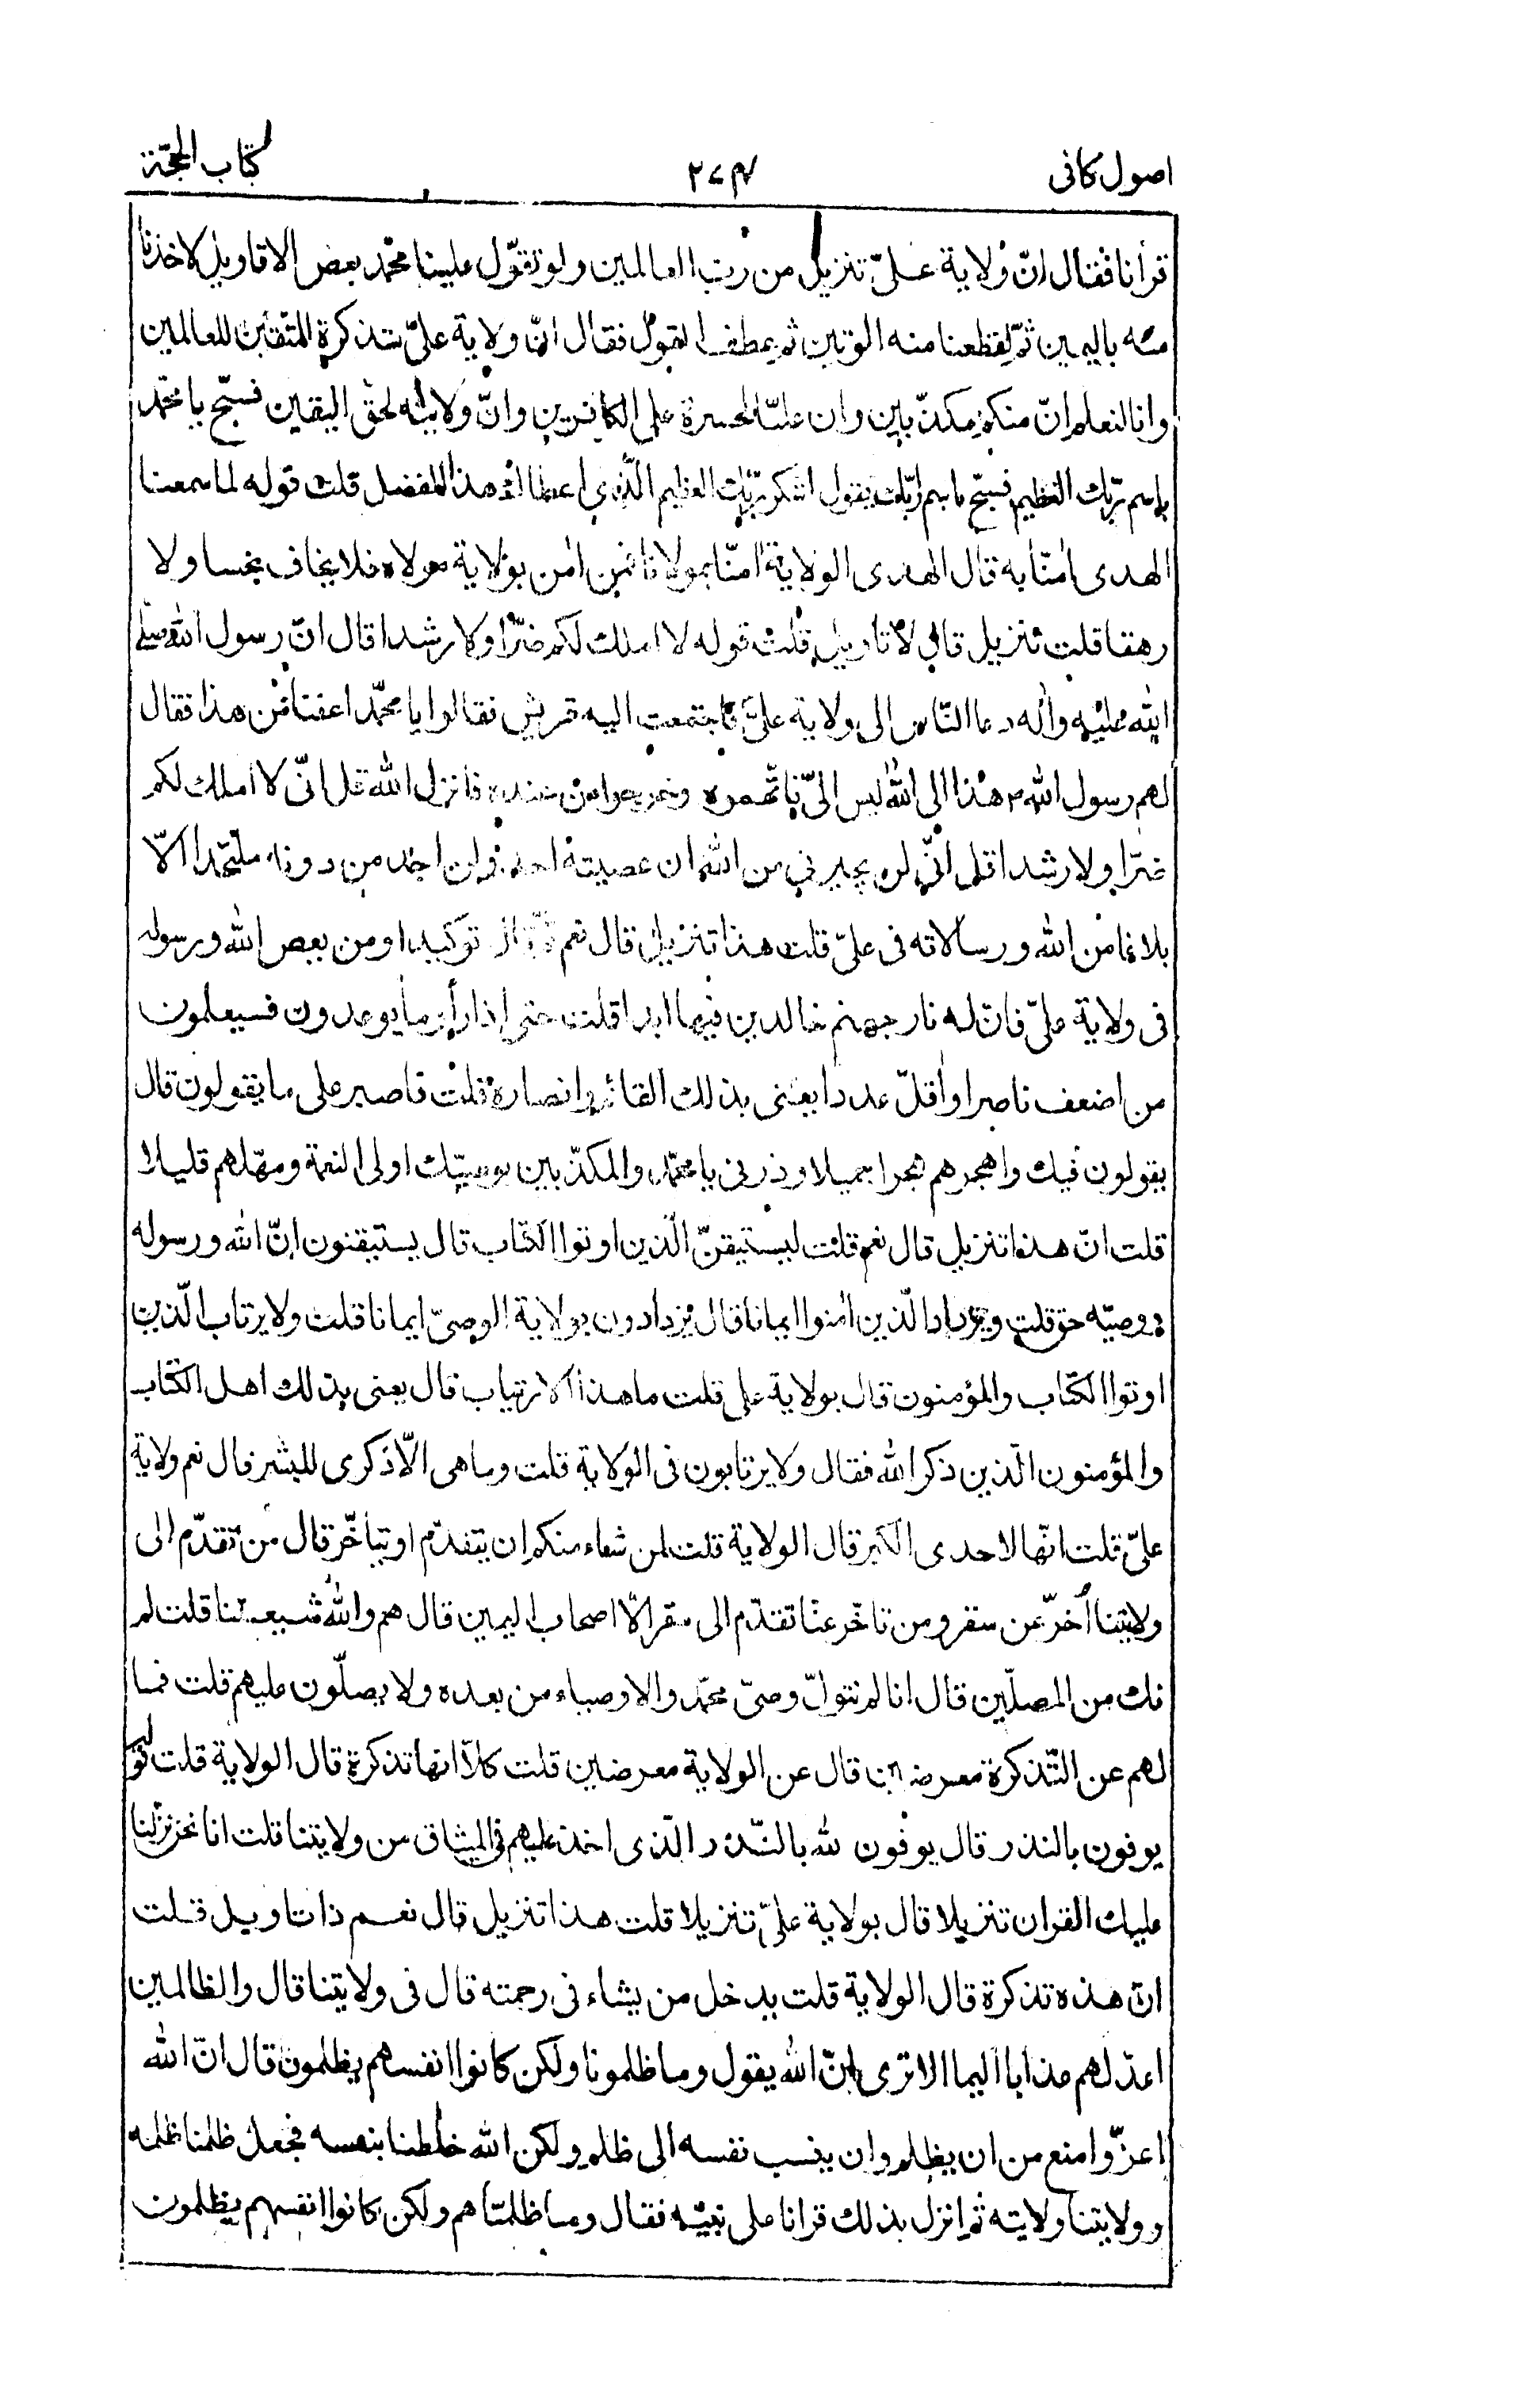 اصول كافى ٢٧٤ كتاب الحجّة
قرأنا فقال انّ ولاية علىّ تنزيل من ربّ العالمين ولو تقوّل علينا محمّد بعض الاقاويل لاخذنا
منه باليمين ثمّ لقطعنا منه الوتين ثم عطف القول فقال انّ ولاية علىّ تذكرة للمتّقين للعالمين
وانا لنعلم انّ منكم مكذّبين وان عليّا لحسرة على الكافرين وانّ ولايته لحقّ اليقين فسبّح يا محمّد
باسم ربّك العظيم فسبّح باسم ربّك يقول اشكر ربّك العظيم الّذى اعطاك هذا الفضل قلت قوله لما سمعنا
الهدى اٰمنّا به قال الهدى الولاية اٰمنّا بمولانا فمن اٰمن بولاية مولاه فلا يخاف بخسا ولا
رهقا قلت تنزيل قال لا تاويل قلت قوله لا املك لكم ضرّا ولا رشدا قال انّ رسول الله صلّى
الله عليه واٰله دعا النّاس الى ولاية علىّ فاجتمعت اليه قريش فقالوا يا محمّد اعفنا من هذا فقال
لهم رسول الله ص هذا الى الله ليس الىّ فاتّهموه وخرجوا من عنده فانزل الله قل انّى لا املك لكم
ضرّا ولا رشدا قل انّى لن يجيرنى من الله ان عصيته احد ولن اجد من دونه ملتحدا الّا
بلاغا من الله ورسالاته فى علىّ قلت هذا تنزيل قال نعم ثمّ قال توكيدا ومن يعص الله ورسوله
فى ولاية علىّ فانّ له نار جهنم خالدين فيها ابدا قلت حتى اذا رأوا ما يوعدون فسيعلمون
من اضعف ناصرا واقلّ عددا يعنى بذلك القائم وانصاره قلت فاصبر على ما يقولون قال
يقولون فيك واهجرهم هجرا جميلا وذرنى يا محمّد والمكذّبين بوصيّك اولى النعمة ومهّلهم قليلا
قلت انّ هذا تنزيل قال نعم قلت ليستيقنّ الّذين اوتوا الكتاب قال يستيقنون انّ الله ورسوله
ووصيّه حق قلت ويزداد الّذين اٰمنوا ايمانا قال يزدادون بولاية الوصىّ ايمانا قلت ولا يرتاب الّذين
اوتوا الكتاب والمؤمنون قال بولاية على قلت ما هذا الارتياب قال يعنى بذلك اهل الكتاب
والمؤمنون الّذين ذكر الله فقال ولا يرتابون فى الولاية قلت وما هى الّا ذكرى للبشر قال نعم ولاية
علىّ قلت انّها لاحدى الكبر قال الولاية قلت لمن شاء منكم ان يتقدّم او يتأخّر قال من تقدّم الى
ولايتنا اُخّر عن سقر ومن تاخّر عنّا تقدّم الى سقر الّا اصحاب اليمين قال هم والله شيعتنا قلت لم
نك من المصلّين قال انا لم نتولّ وصىّ محمّد والاوصياء من بعده ولا يصلّون عليهم قلت فما
لهم عن التّذكرة معرضين قال عن الولاية معرضين قلت كلّا انها تذكرة قال الولاية قلت قوله
يوفون بالنذر قال يوفون لله بالنّذر الّذى اخذ عليهم فى الميثاق من ولايتنا قلت انا نحن نزّلنا
عليك القران تنزيلا قال بولاية علىّ تنزيلا قلت هذا تنزيل قال نعم ذا تاويل قلت
انّ هذه تذكرة قال الولاية قلت يدخل من يشاء فى رحمته قال فى ولايتنا قال والظالمين
اعدّ لهم عذابا اليما الا ترى انّ الله يقول وما ظلمونا ولكن كانوا انفسهم يظلمون قال انّ الله
اعزّ وامنع من ان يظلم وان ينسب نفسه الى ظلم ولكن الله خلطنا بنفسه فجعل ظلمنا ظلمه
وولايتنا ولايته ثم انزل بذلك قرانا على نبيّه فقال وما ظلمناهم ولكن كانوا انفسهم يظلمون